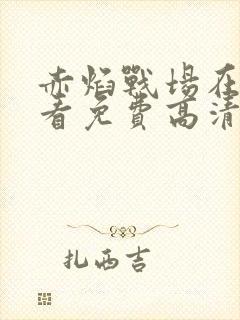 赤焰戰場在
看免費高清
扎西吉